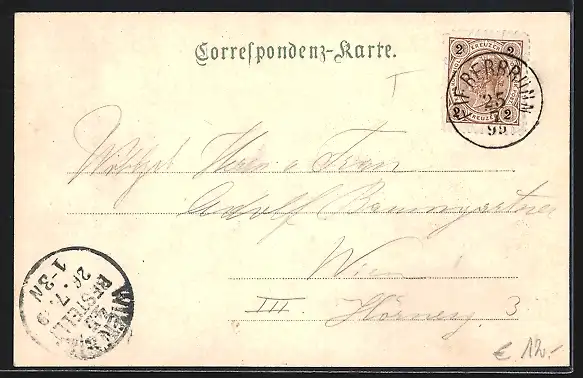 Correspondenz-Karte.
2 KREUZER 2
KIE BERBRUNN
25
7
99
2 KREUZER 2
Herrn u Frau
Adolf Baumgartner
Wien
III. Hörneg. 3
WIEN
BESTELLT
26. 7. 9
1-3N
€ 12.-